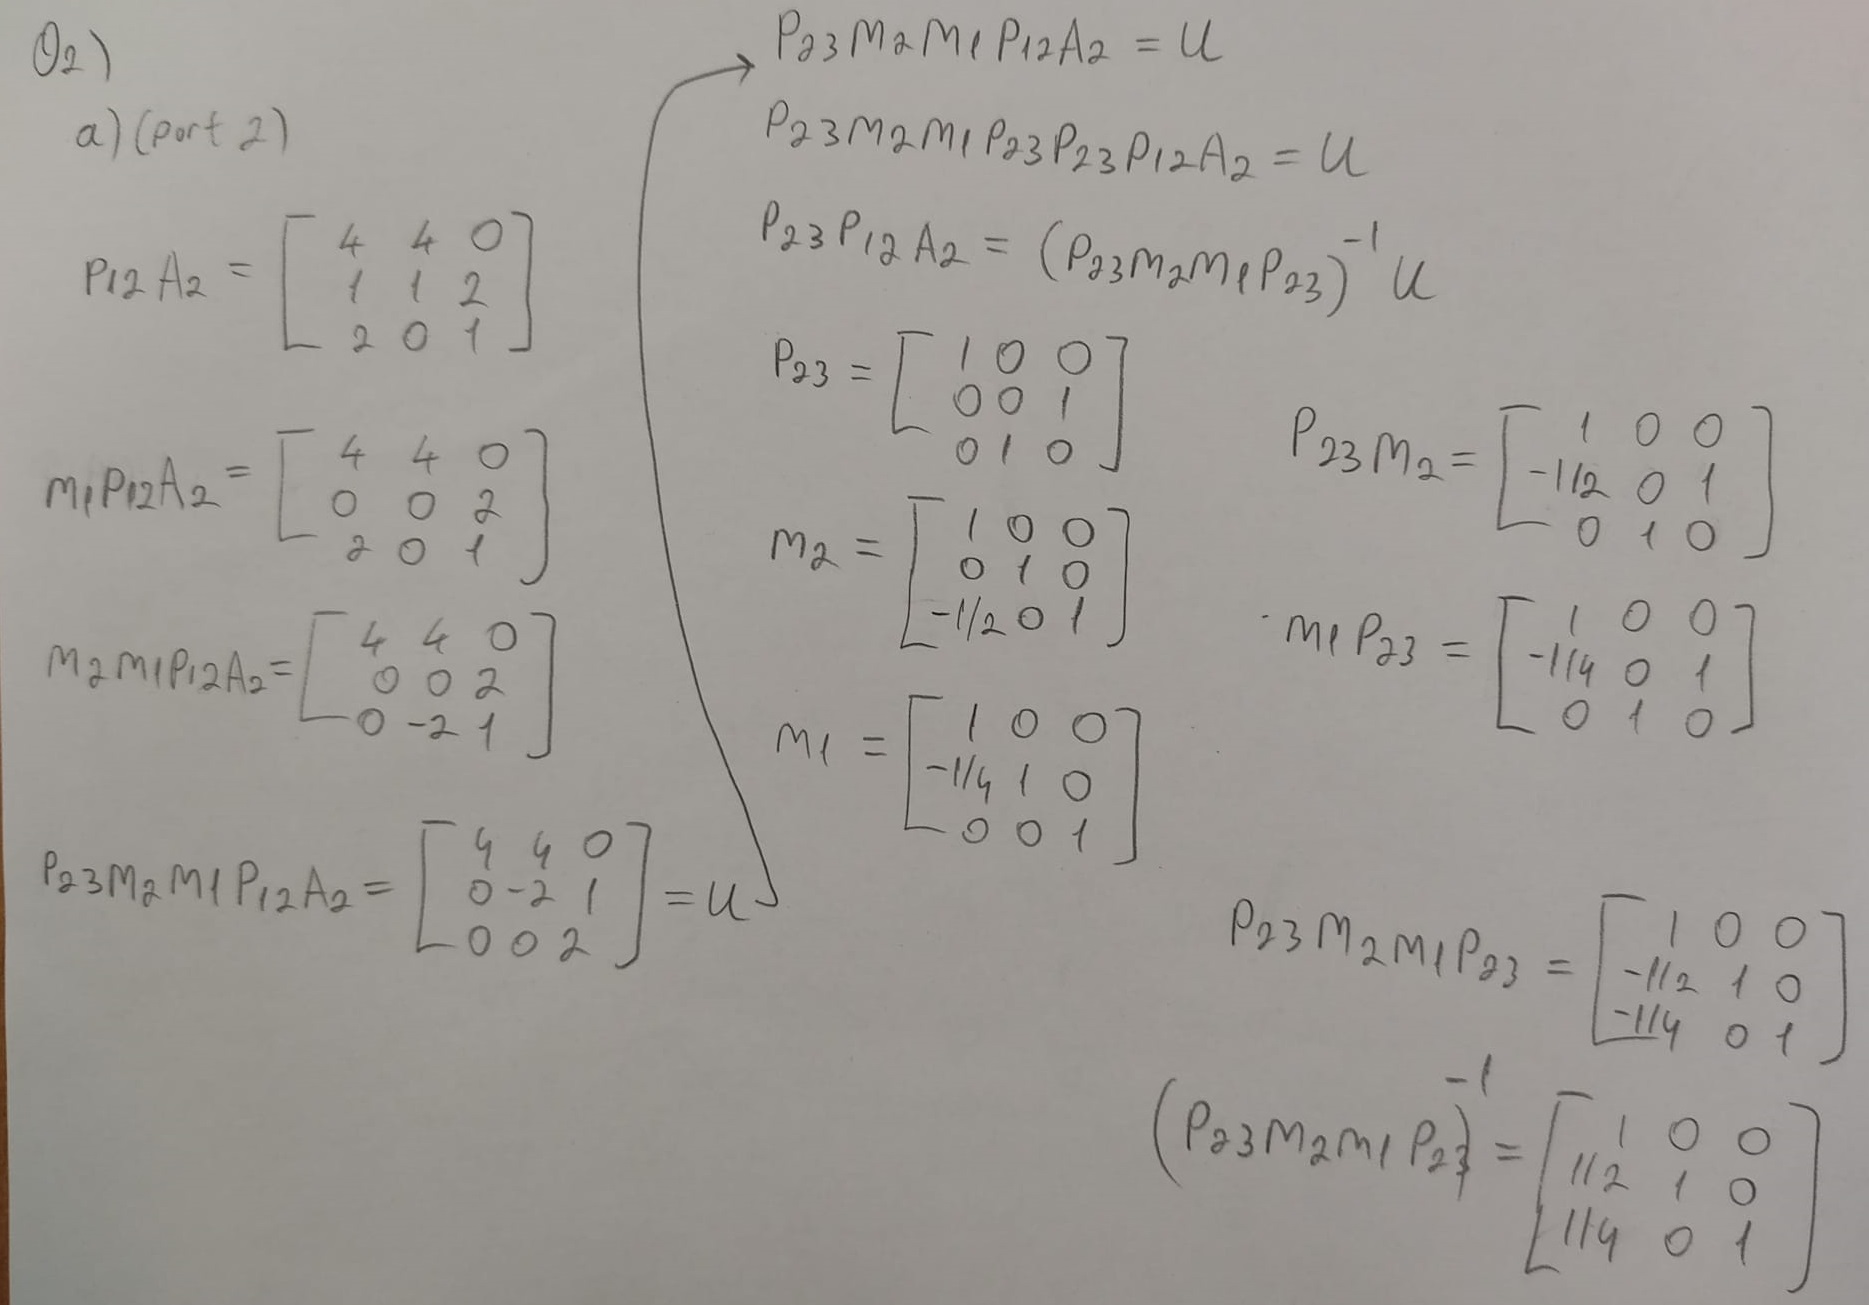 Q2)
a) (part 2)
P12 A2 = [ 4 4 0
1 1 2
2 0 1 ]
M1P12A2 = [ 4 4 0
0 0 2
2 0 1 ]
M2M1P12A2 = [ 4 4 0
0 0 2
0 -2 1 ]
P23M2M1P12A2 = [ 4 4 0
0 -2 1
0 0 2 ] = U
P23M2M1P12A2 = U
P23M2M1P23P23P12A2 = U
P23P12A2 = (P23M2M1P23)^-1 U
P23 = [ 1 0 0
0 0 1
0 1 0 ]
M2 = [ 1 0 0
0 1 0
-1/2 0 1 ]
M1 = [ 1 0 0
-1/4 1 0
0 0 1 ]
P23M2 = [ 1 0 0
-1/2 0 1
0 1 0 ]
M1P23 = [ 1 0 0
-1/4 0 1
0 1 0 ]
P23M2M1P23 = [ 1 0 0
-1/2 1 0
-1/4 0 1 ]
(P23M2M1P23)^-1 = [ 1 0 0
1/2 1 0
1/4 0 1 ]